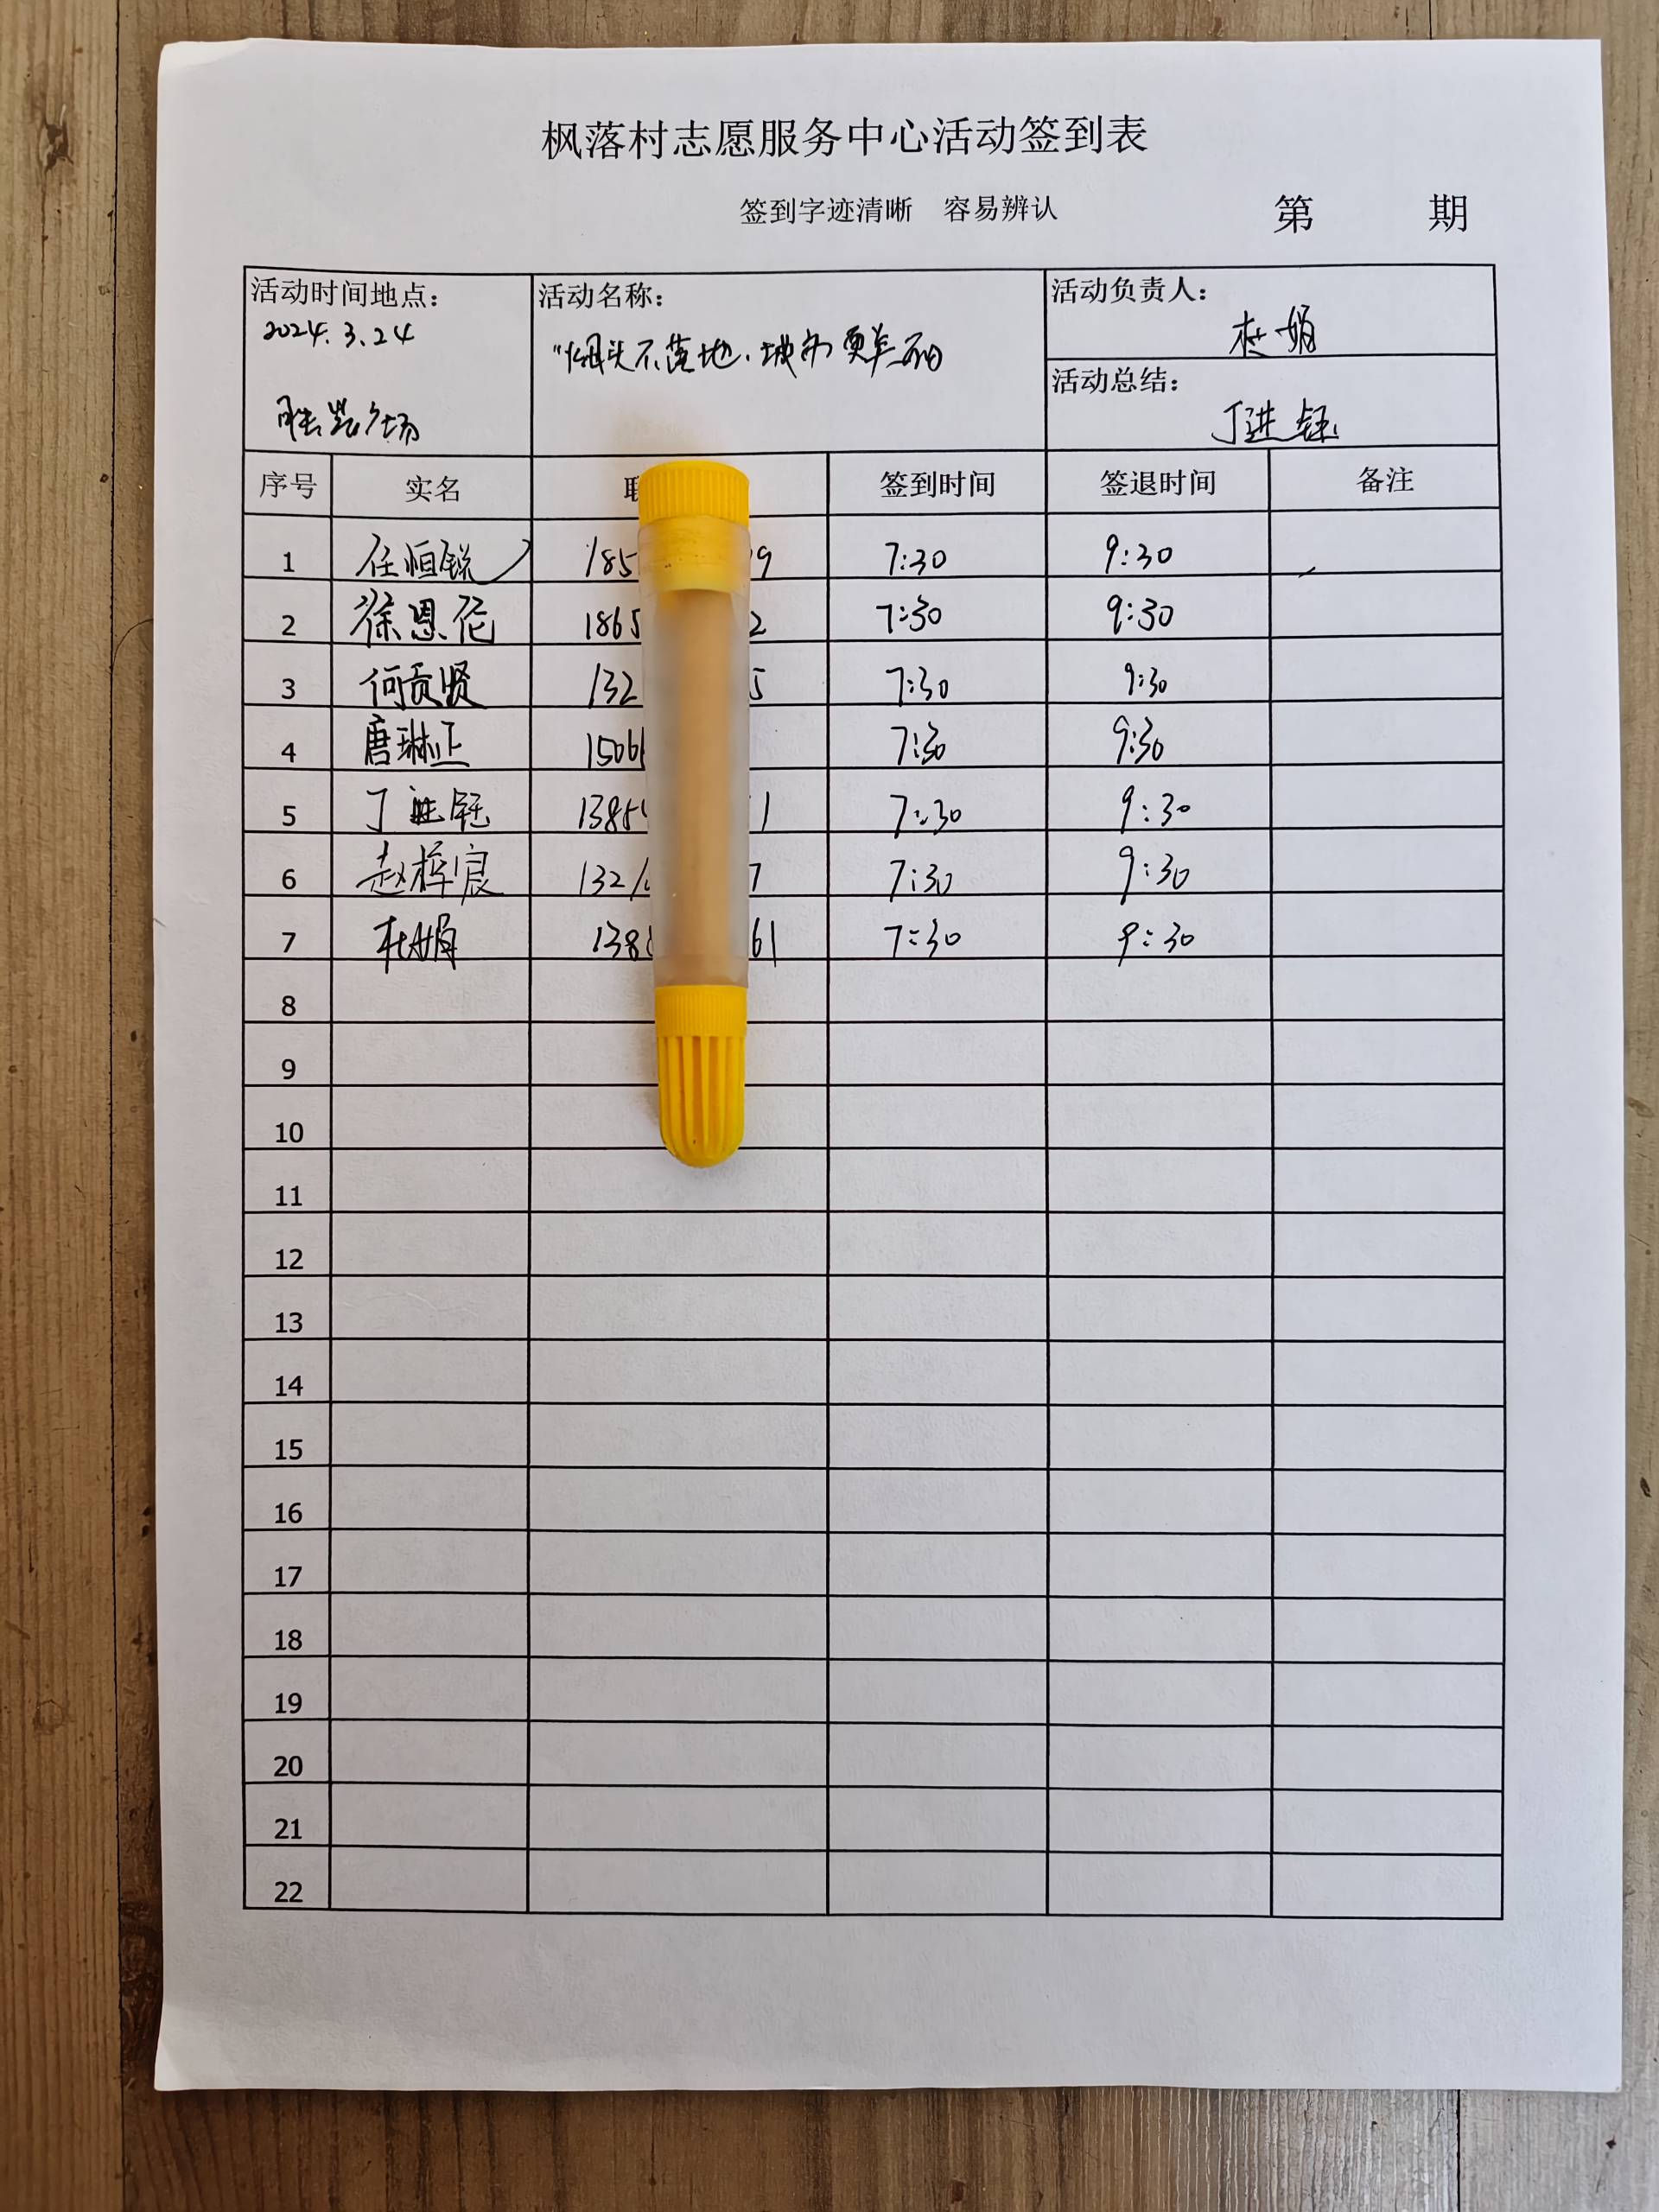 枫落村志愿服务中心活动签到表
签到字迹清晰 容易辨认
第 期
活动时间地点:
2024.3.24
广场
活动名称:
"烟头不落地,城市更美丽
活动负责人:
杜娟
活动总结:
丁进钰
序号 实名 签到时间 签退时间 备注
1 任恒锐 185 9 7:30 9:30
2 徐恩伦 1865 2 7:30 9:30
3 何贡贤 132 5 7:30 9:30
4 唐琳正 1506 7:30 9:30
5 丁进钰 1385 1 7:30 9:30
6 赵梓宸 132 7 7:30 9:30
7 杜娟 138 61 7:30 9:30
8
9
10
11
12
13
14
15
16
17
18
19
20
21
22